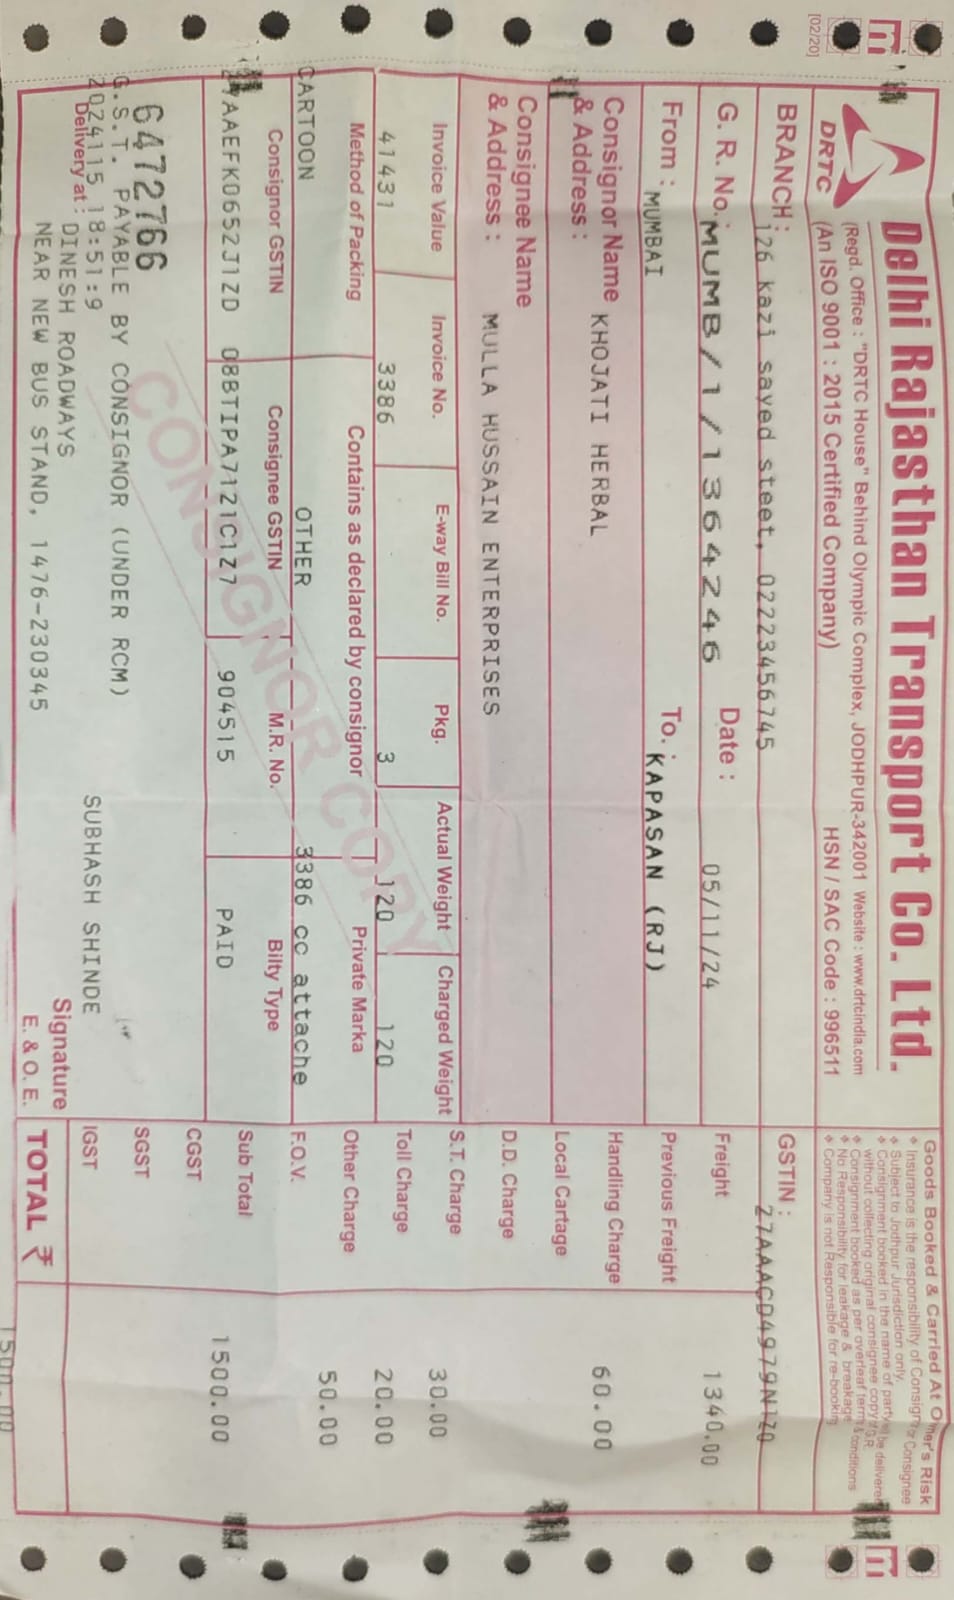 [02/20]
Delhi Rajasthan Transport Co. Ltd.
DRTC
(Regd. Office : "DRTC House" Behind Olympic Complex, JODHPUR-342001 Website : www.drtcindia.com
(An ISO 9001 : 2015 Certified Company) HSN / SAC Code : 996511
Goods Booked & Carried At Owner's Risk
Insurance is the responsibility of Consignor Consignee
Subject to Jodhpur Jurisdiction only.
Consignment booked in the name of party be delivered
without collecting original consignee copy G.R.
Consignment booked as per overleaf term & conditions
No Responsibility for leakage & breakage
Company is not Responsible for re-booking
BRANCH: 126 kazi sayed steet, 02223456745
GSTIN : 27AAACD4979N1Z0
G. R. No.: MUMB/1/1364246 Date : 05/11/24
Freight 1340.00
From : MUMBAI To. : KAPASAN (RJ)
Previous Freight
Consignor Name & Address : KHOJATI HERBAL
Handling Charge 60.00
Local Cartage
Consignee Name & Address : MULLA HUSSAIN ENTERPRISES
D.D. Charge
S.T. Charge 30.00
Invoice Value Invoice No. E-way Bill No. Pkg. Actual Weight Charged Weight
41431 3386 3 120 120
Toll Charge 20.00
Method of Packing Contains as declared by consignor Private Marka
Other Charge 50.00
CARTOON OTHER 3386 cc attache
F.O.V.
Consignor GSTIN Consignee GSTIN M.R. No. Bilty Type
AAEFK0652J1ZD 08BTIPA7121C1Z7 904515 PAID
Sub Total 1500.00
CGST
SGST
IGST
TOTAL ₹ 1500.00
CONSIGNOR COPY
647276
G.S.T. PAYABLE BY CONSIGNOR (UNDER RCM)
20241115 18:51:9 SUBHASH SHINDE
Delivery at : DINESH ROADWAYS
NEAR NEW BUS STAND, 1476-230345
Signature
E. & O. E.